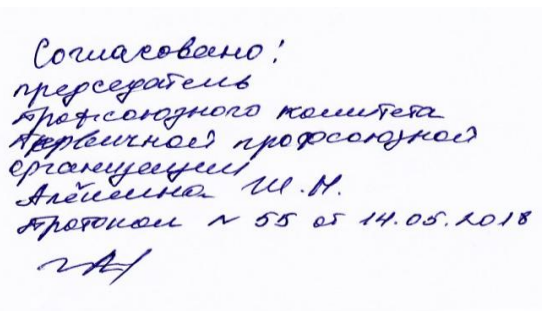 Согласовано:
председатель
профсоюзного комитета
первичной профсоюзной
организации
Алёшина Ш. Н.
протокол № 55 от 14.05.2018